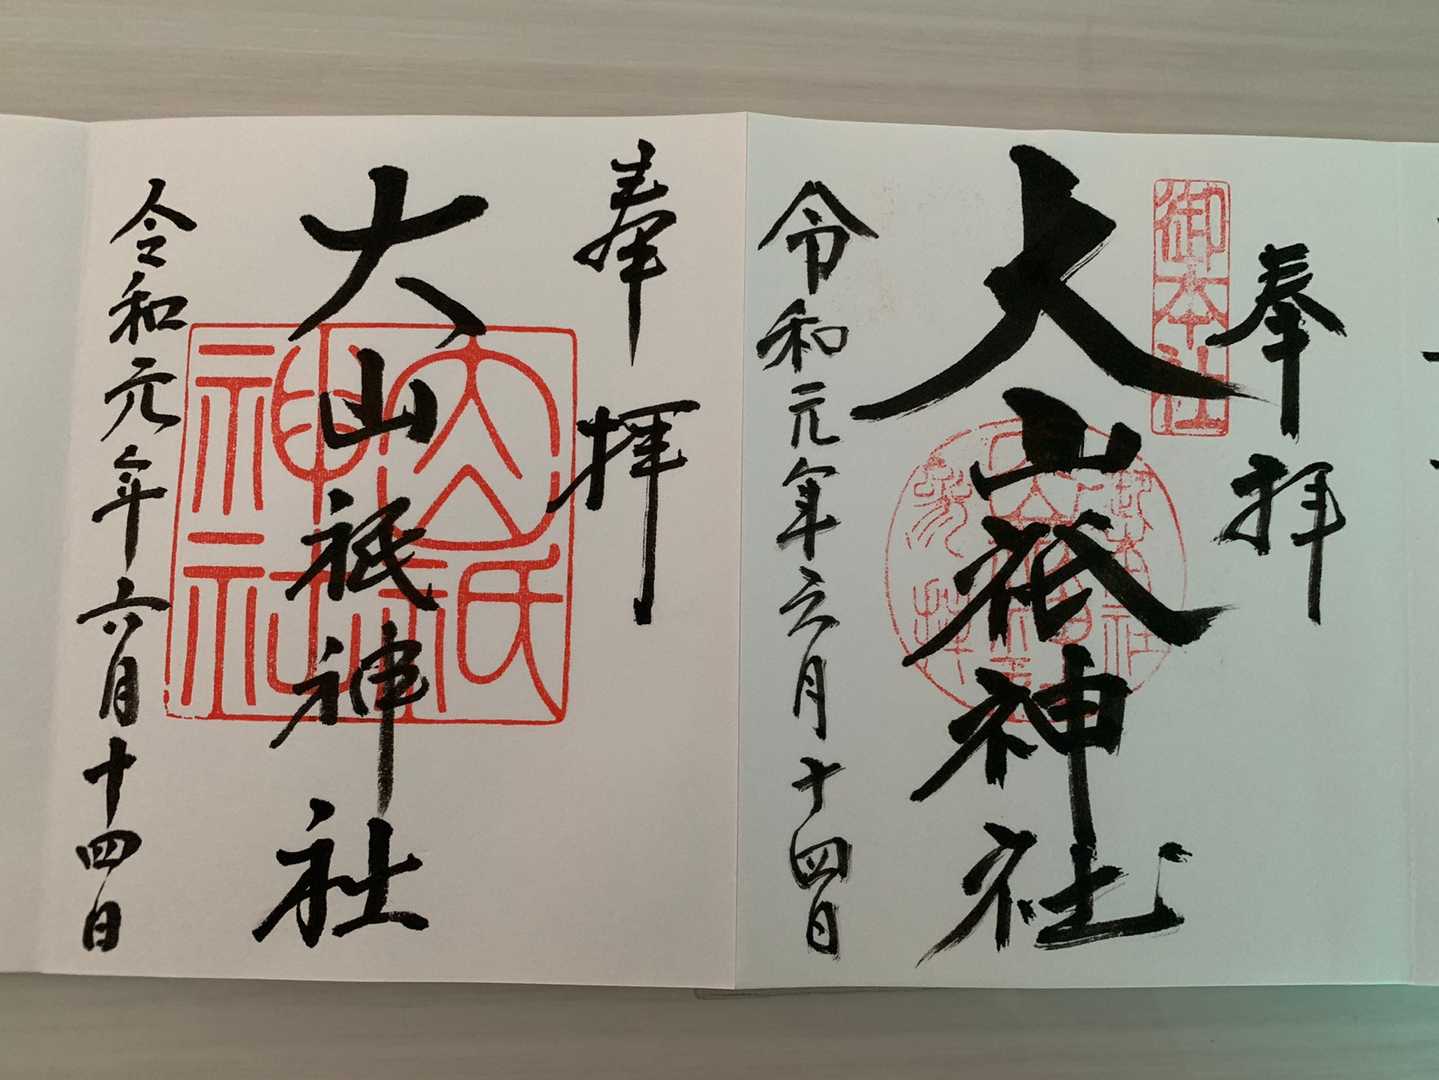 奉拝
御本社
大山祇神社
令和元年六月十四日
奉拝
大山祇神社
大山祇神社
令和元年六月十四日